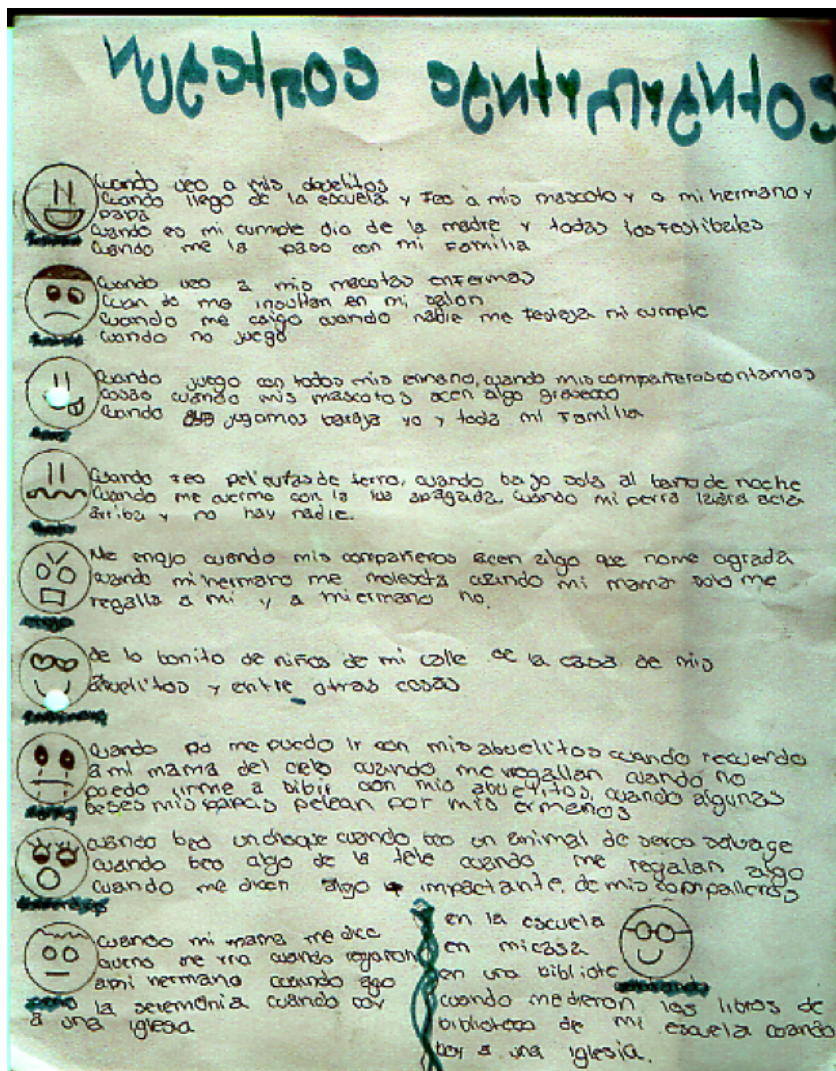 cuando veo a mis abuelitos
Cuando llego de la escuela y feo a mis mascoto y a mi hermano y
papa
Cuando es mi cumple dia de la madre y todas los festibales
Cuando me la paso con mi familia
Cuando veo a mis macotas enfermas
Cuan do me insultan en mi salon
Cuando me caigo cuando nadie me festeja mi cumple
cuando no juego
Cuando juego con todos mis ermano, cuando mis compañeros contamos
cosas cuando mis mascotas acen algo
Cuando jugamos baraja yo y toda mi familia
Cuando feo peliculas de terro, cuando bajo sola al baño de noche
Cuando me duermo con la lus apagada cuando mi perra ladra acia
arriba y no hay nadie.
Me enojo cuando mis compañeros acen algo que no me agrada
cuando mi hermano me molesta cuando mi mama solo me
regalla a mi y a mi ermano no.
de lo bonito de niños de mi calle de la casa de mis
abuelitos y entre otras cosas
cuando no me puedo ir con mis abuelitos cuando recuerdo
a mi mama del cielo cuando me regallan cuando no
puedo irme a bibir con mis abuelitos, cuando algunas
beses mis papas pelean por mis ermenos
cuando beo un choque cuando beo un animal de serca salvage
cuando beo algo de la tele cuando me regalan algo
cuando me dicen algo impactante, de mis compalleros
cuando mi mama me dice
que no me ria cuando regañan
a mi hermano cuando ago
la seremonia cuando boy
a una iglesia
en la escuela
en mi casa
en una bibliote
cuando me dieron las libros de
biblioteca de mi escuela cuando
boy a una iglesia.